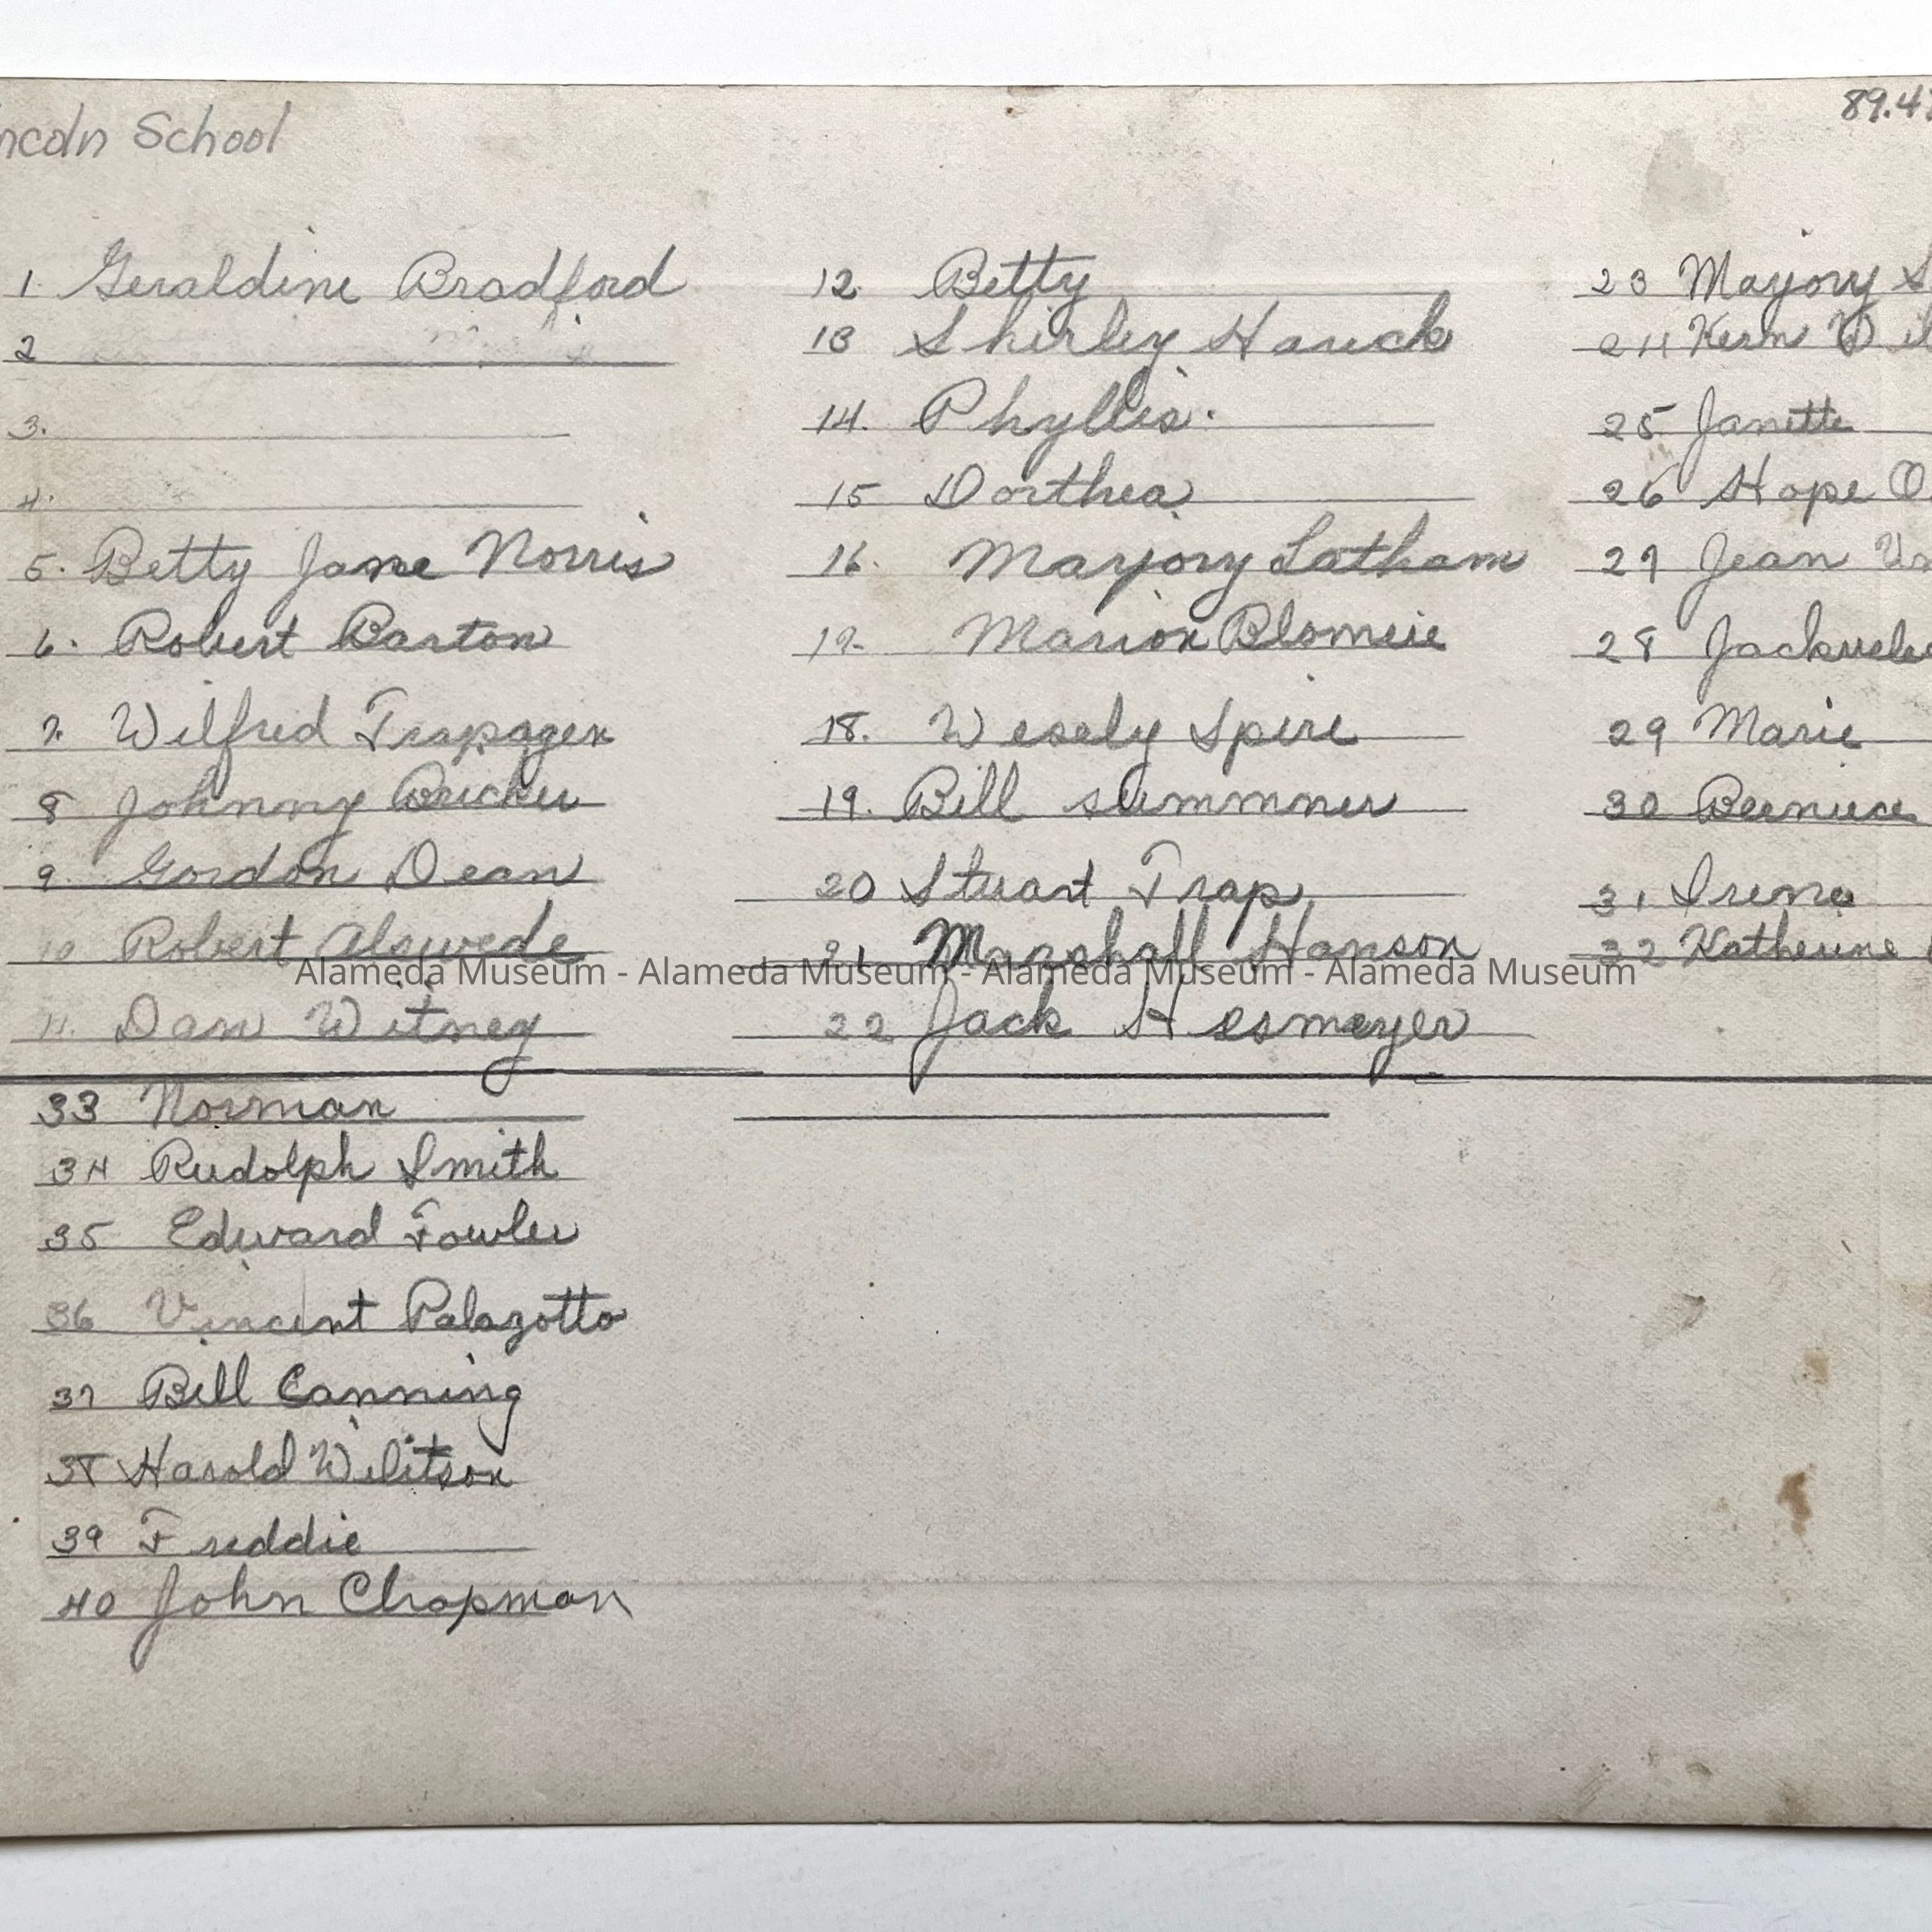 ncoln School
89.4
1. Geraldine Bradford
2
3.
4.
5. Betty Jane Norris
6. Robert Barton
7. Wilfred Trapagen
8 Johnny
9. Gordon Dean
10 Robert Alswede
11. Dan Witney
12. Betty
13 Shirley Hauck
14. Phyllis.
15 Dorthea
16. Marjory Latham
Marion
18. Wesely Spire
19. Bill summner
20 Stuart Trap
21 Marshall Hanson
22 Jack Hesmeyer
23 Marjory S
24 Kern Wil
25 Janette
26 Hope O
27 Jean
28
29 Marie
30 Berniece
31 Irene
32 Katherine
Alameda Museum - Alameda Museum - Alameda Museum - Alameda Museum
33 Norman
34 Rudolph Smith
35 Edward Fowler
36 Vincent Palazotto
37 Bill Canning
38 Harold Wilitson
39 Freddie
40 John Chapman